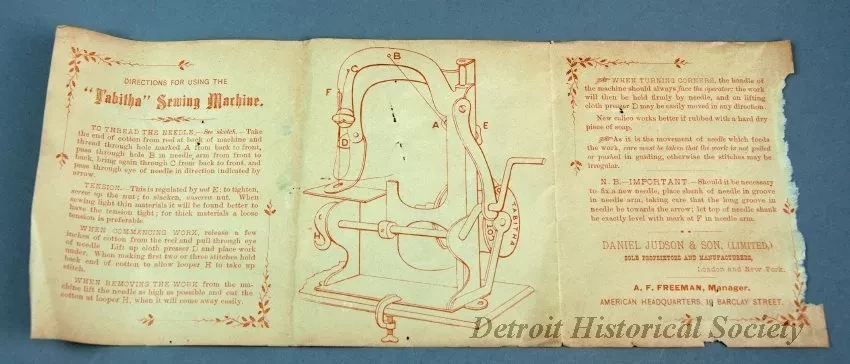 DIRECTIONS FOR USING THE
"Tabitha" Sewing Machine.
TO THREAD THE NEEDLE,—See sketch.—Take
the end of cotton from reel at back of machine and
thread through hole marked A from back to front,
pass through hole B in needle arm from front to
back, bring again through C from back to front, and
pass through eye of needle in direction indicated by
arrow.
TENSION.—This is regulated by nut E; to tighten,
screw up the nut; to slacken, unscrew nut. When
sewing light thin materials it will be found better to
have the tension tight; for thick materials a loose
tension is preferable.
WHEN COMMENCING WORK, release a few
inches of cotton from the reel and pull through eye
of needle. Lift up cloth presser D and place work
under. When making first two or three stitches hold
back end of cotton to allow looper H to take up
stitch.
WHEN REMOVING THE WORK from the ma-
chine lift the needle as high as possible and cut the
cotton at looper H, when it will come away easily.
B
C
F
A
E
D
H
TABITHA
WHEN TURNING CORNERS, the handle of
the machine should always face the operator; the work
will then be held firmly by needle, and on lifting
cloth presser D may be easily moved in any direction.
New calico works better if rubbed with a hard dry
piece of soap.
As it is the movement of needle which feeds
the work, care must be taken that the work is not pulled
or pushed in guiding, otherwise the stitches may be
irregular.
N. B.—IMPORTANT.—Should it be necessary
to fix a new needle, place shank of needle in groove
in needle arm, taking care that the long groove in
needle be towards the arrow; let top of needle shank
be exactly level with mark at F in needle arm.
DANIEL JUDSON & SON, (LIMITED.)
SOLE PROPRIETORS AND MANUFACTURERS,
London and New York.
A. F. FREEMAN, Manager.
AMERICAN HEADQUARTERS, BARCLAY STREET.
Detroit Historical Society